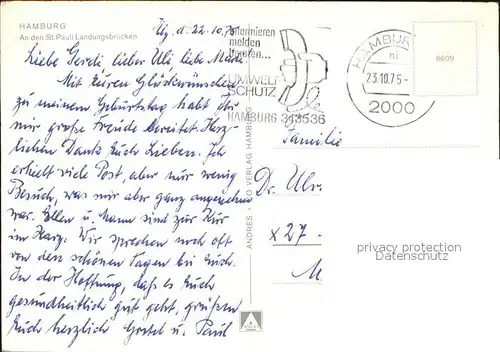 HAMBURG
An den St. Pauli Landungsbrücken
Hbg, d. 22.10.75
Liebe Gerdi, lieber Uli, liebe Mädi.
Mit Euren Glückwünschen
zu meinem Geburtstag habt Ihr
mir große Freude bereitet. Herz-
lichen Dank Euch Lieben. Ich
erhielt viele Post, aber nur wenig
Besuch, was mir aber ganz angenehm
war. Ellen u. Mann sind zur Kur
im Harz. Wir sprechen noch oft
von den schönen Tagen bei Euch.
In der Hoffnung, daß es Euch
gesundheitlich gut geht, grüßen
Euch herzlich Gretel u. Paul
informieren
melden
fragen...
UMWELT
SCHUTZ
HAMBURG 343536
HAMBUR
23.10.75-
2000
8609
ANDRES VERLAG HAMBURG
Familie
Dr. Ulr
x 27-
M
privacy protection
Datenschutz